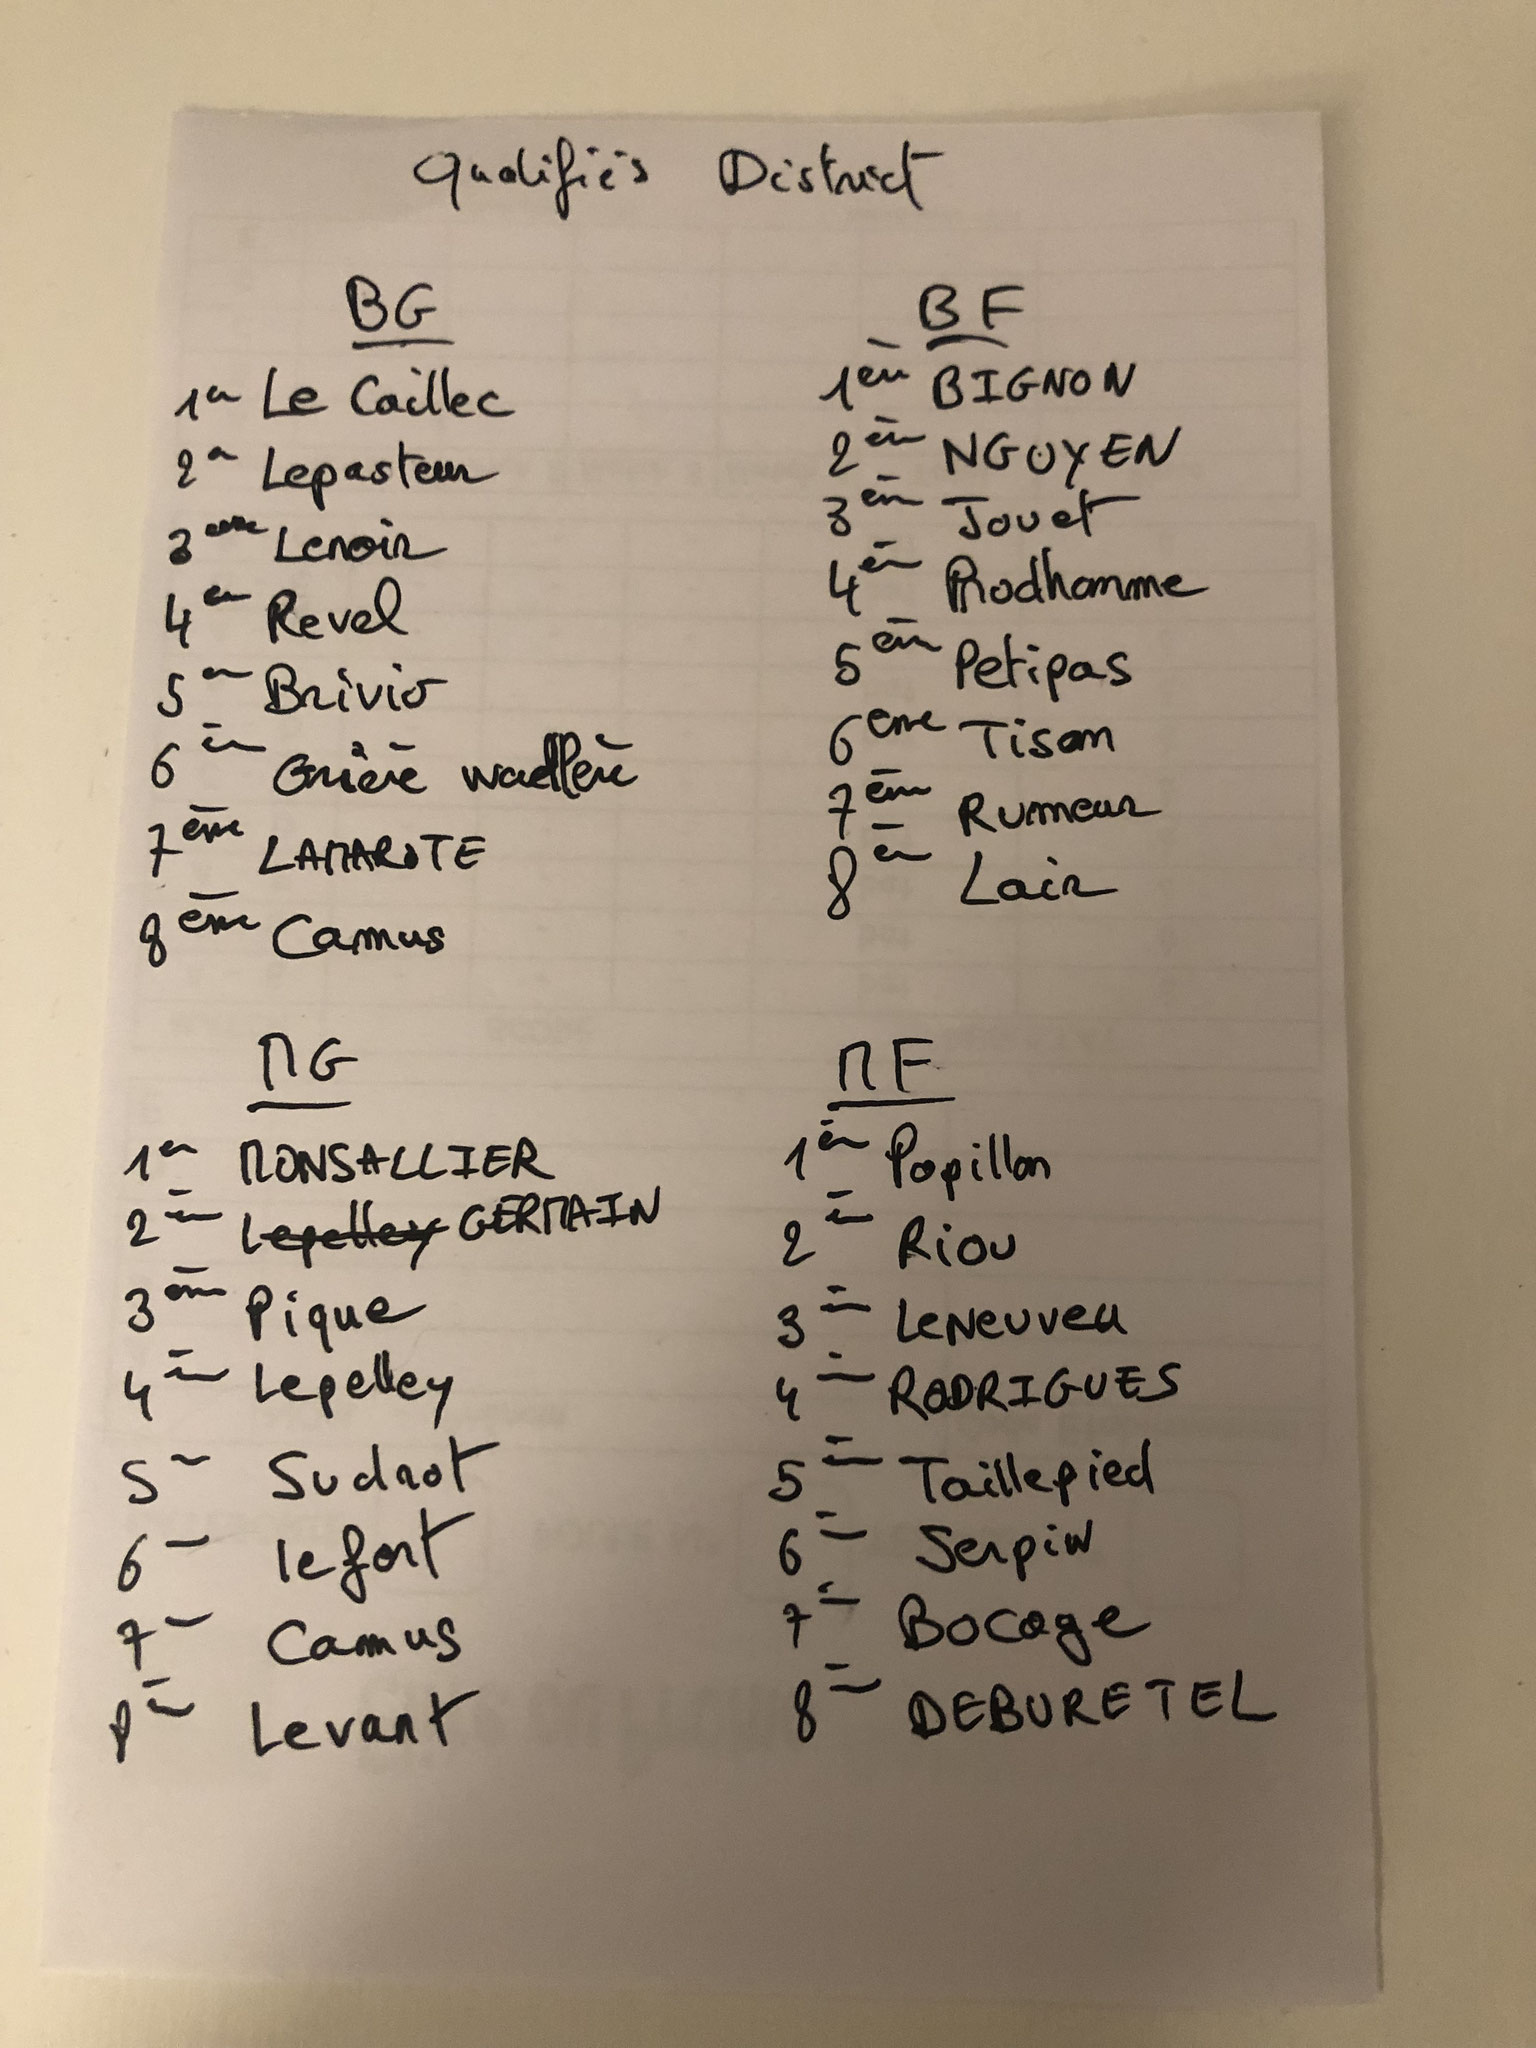 Qualifiés District
BG
1er Le Caillec
2e Lepasteur
3eme Lenoir
4em Revel
5em Brivio
6èm Grière
7ème LAMAROTE
8ème Camus
BF
1èm BIGNON
2èm NGUYEN
3èm Jouet
4èm Prodhomme
5èm Petipas
6eme Tison
7ème Rumeur
8èm Lair
MG
1er MONSALLIER
2èm Lepelley GERMAIN
3ème Pique
4èm Lepelley
5 Sudrot
6 lefort
7 Camus
8èm Levant
MF
1èr Popillon
2èm Riou
3èm LeNeuveu
4èm RODRIGUES
5èm Taillepied
6èm Serpin
7èm Bocage
8èm DEBURETEL